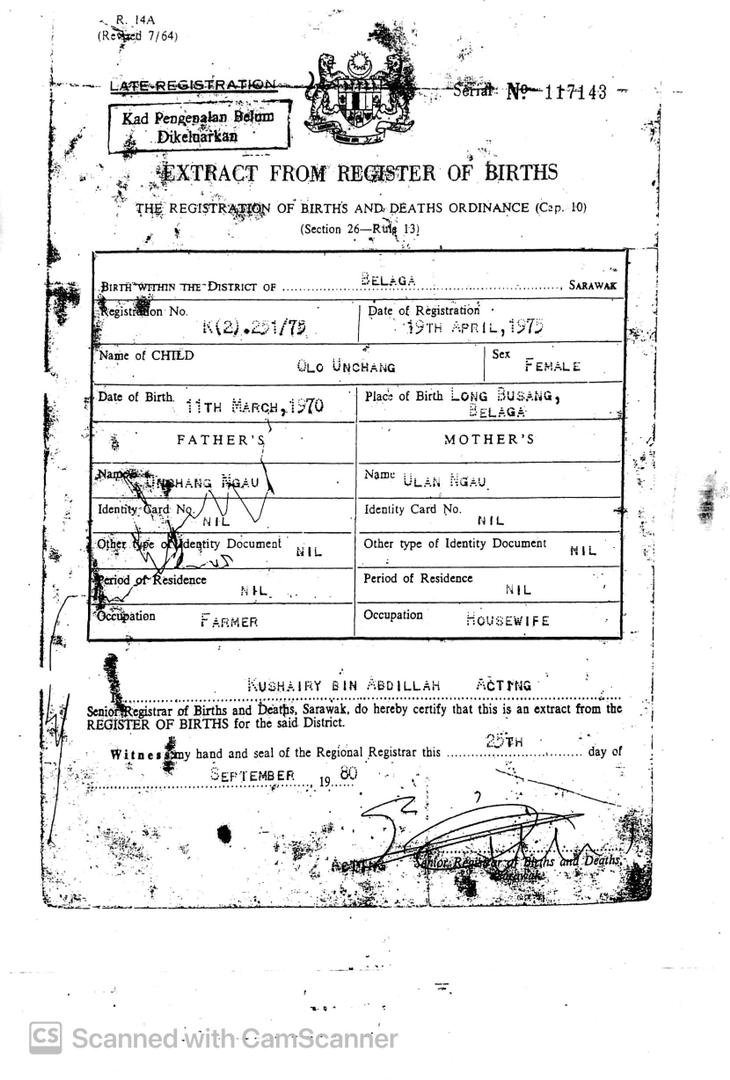 R. 14A
(Revised 7/64)
LATE REGISTRATION
Serial No 117143
Kad Pengenalan Belum
Dikeluarkan
EXTRACT FROM REGISTER OF BIRTHS
THE REGISTRATION OF BIRTHS AND DEATHS ORDINANCE (Cap. 10)
(Section 26—Rule 13)
BIRTH WITHIN THE DISTRICT OF BELAGA, SARAWAK
Registration No. K(2).251/75 Date of Registration 19TH APRIL, 1975
Name of CHILD OLO UNCHANG Sex FEMALE
Date of Birth 11TH MARCH, 1970 Place of Birth LONG BUSANG,
BELAGA
FATHER'S MOTHER'S
Name UNCHANG NGAU Name ULAN NGAU
Identity Card No. NIL Identity Card No. NIL
Other type of Identity Document NIL Other type of Identity Document NIL
Period of Residence NIL Period of Residence NIL
Occupation FARMER Occupation HOUSEWIFE
KUSHAIRY BIN ABDILLAH ACTING
Senior Registrar of Births and Deaths, Sarawak, do hereby certify that this is an extract from the
REGISTER OF BIRTHS for the said District.
Witness my hand and seal of the Regional Registrar this 25TH day of
SEPTEMBER 19 80
ACTING Senior Registrar of Births and Deaths,
Sarawak
CS Scanned with CamScanner